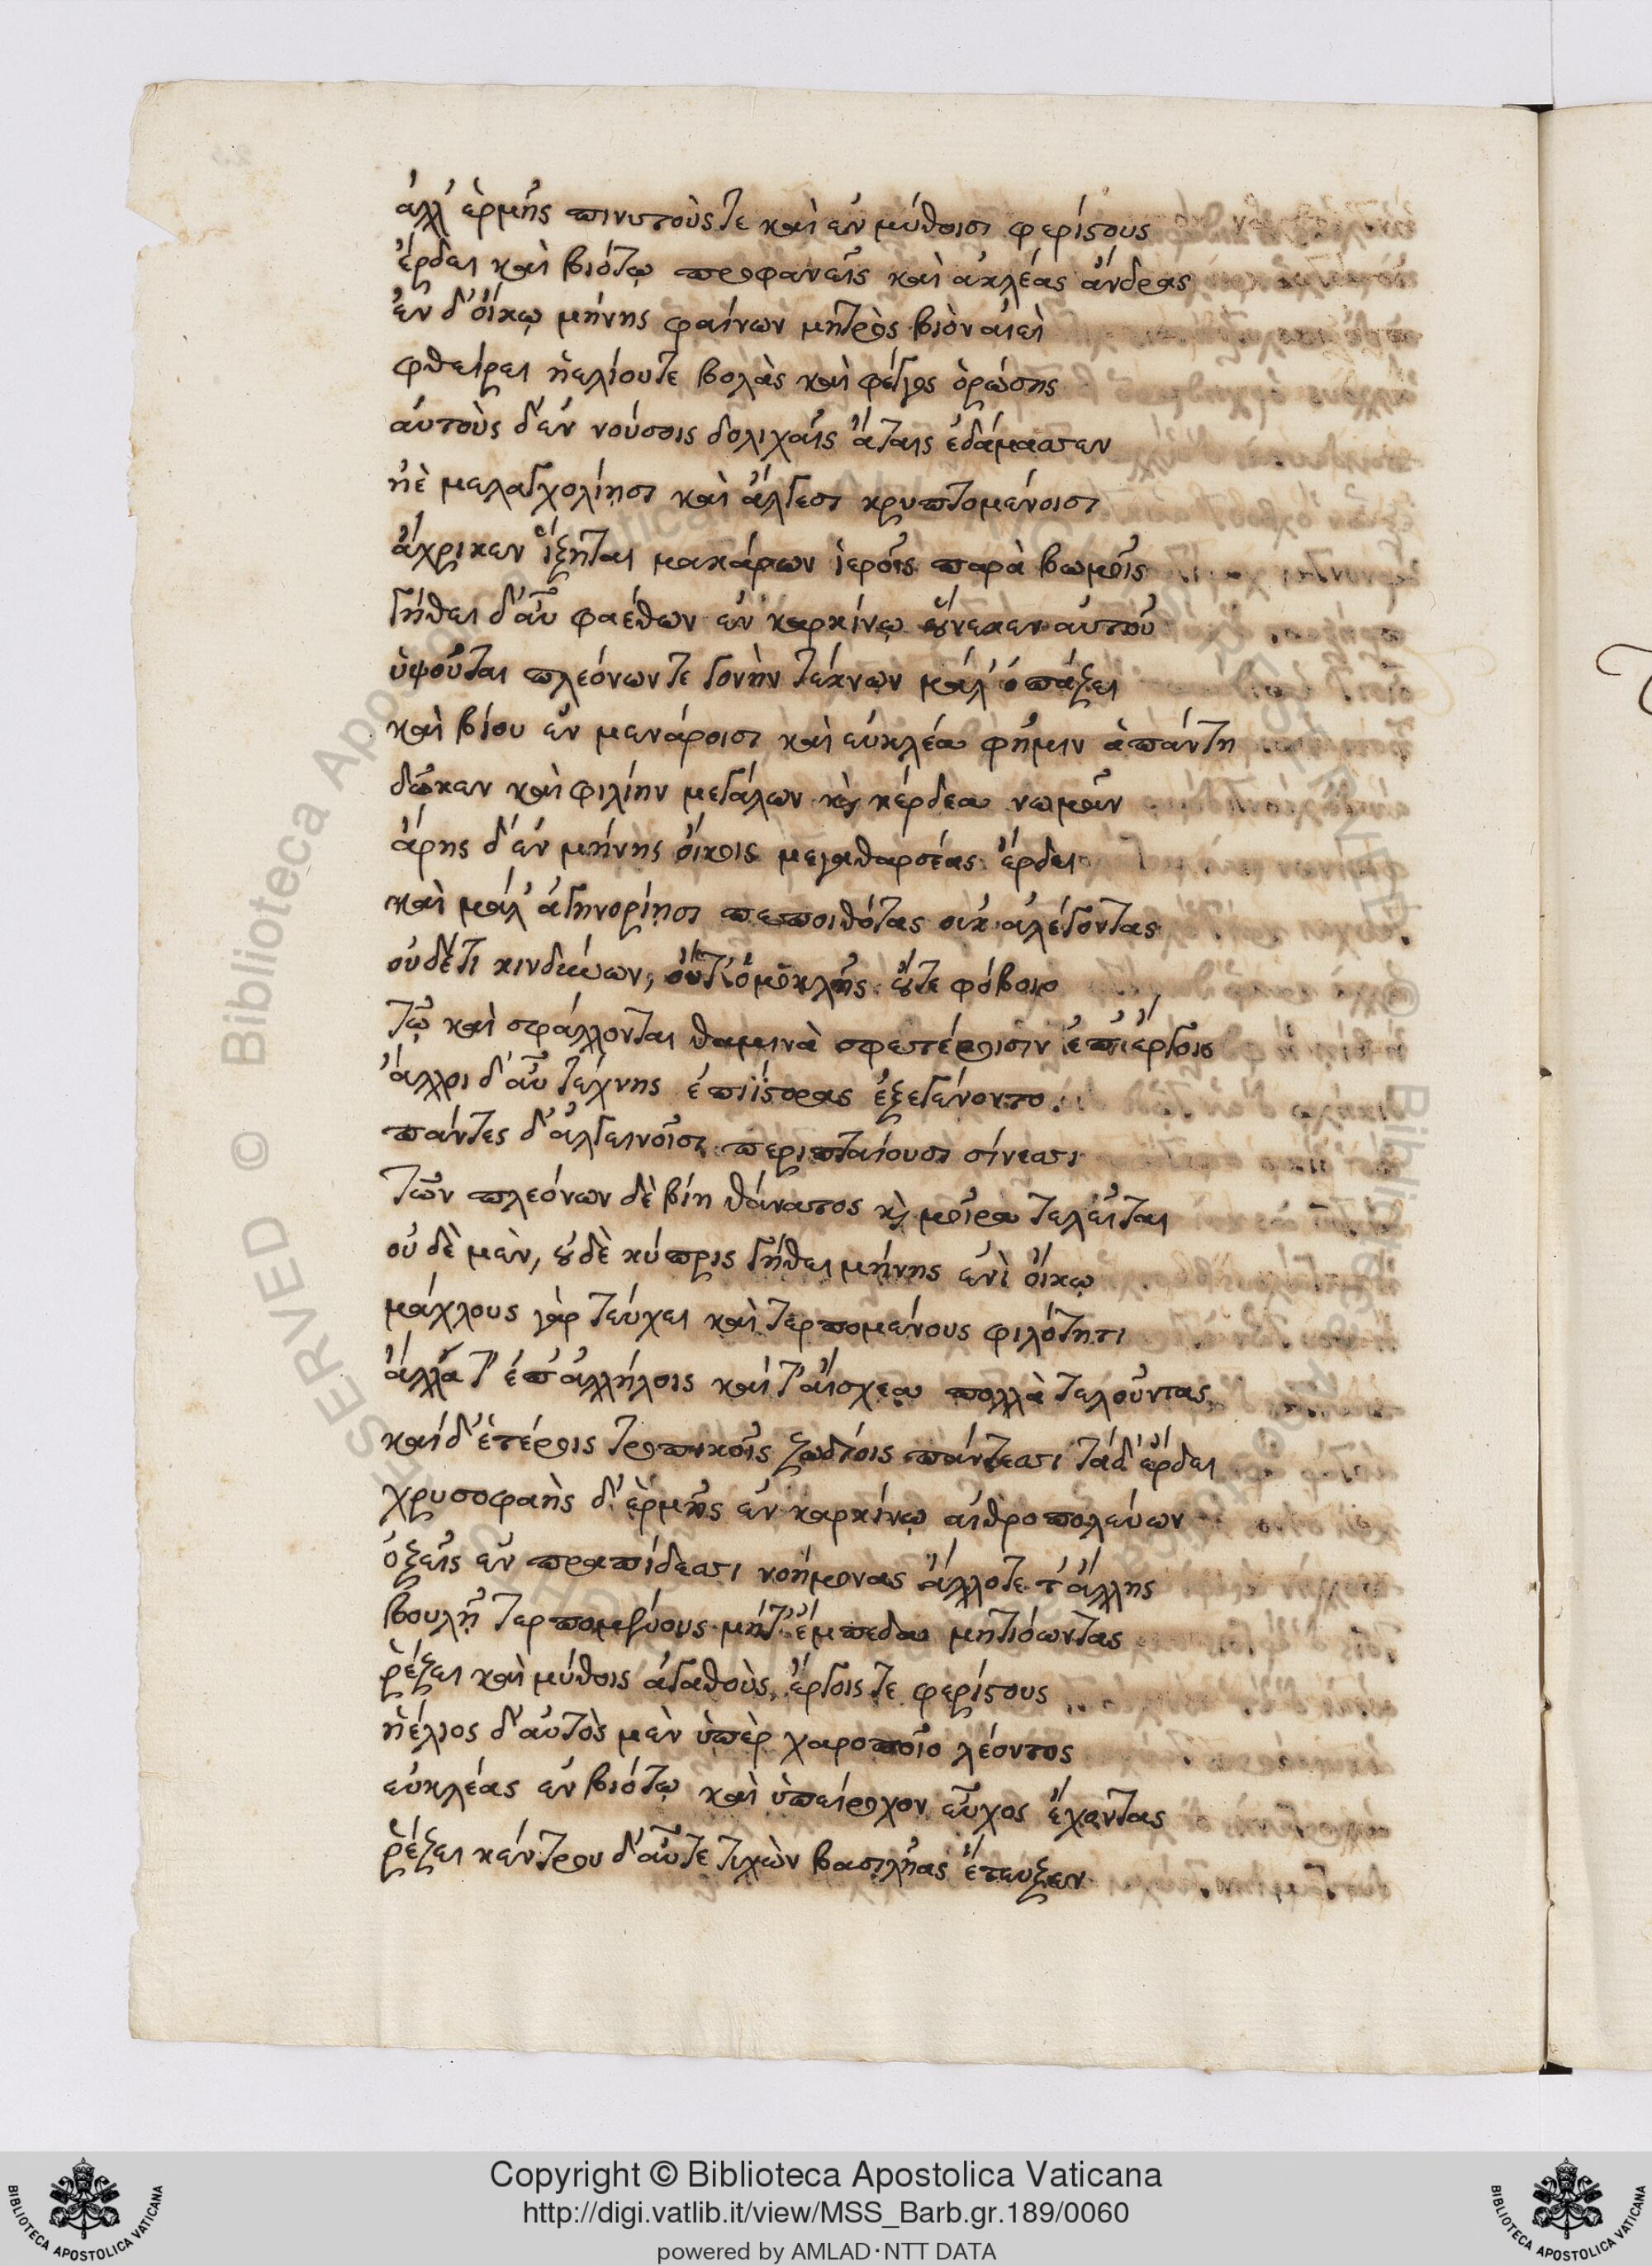 ἀλλ' ἑρμῆς πινυτούς τε καὶ ἐν μύθοισι φερίστους
ἔρδει καὶ βιότῳ προφανεῖς καὶ ἀκλέας ἄνδρας
ἐν δ' οἴκῳ μήνης φαίνων μητρὸς βιὸν αἰεὶ
φθείρει ἠελίου τε βολὰς καὶ φέγγος ὁρώσης
αὐτοὺς δ' ἐν νούσοις δολιχαῖς ἄταις ἐδάμασσεν
ἠὲ μελαγχολίῃσι καὶ ἄλγεσι κρυπτομένοισι
ἄχρι κεν ἵξηται μακάρων ἱεροῖς παρὰ βωμοῖς
γήθει δ' αὖ φαέθων ἐν καρκίνῳ οὕνεκεν αὐτοῦ
ὑψοῦται πλεόνων τε γονὴν τέκνων μάλ' ὀπάζει
καὶ βίου ἐν μενάροισι καὶ εὐκλέα φῆμιν ἁπάντη
δῶκεν καὶ φιλίην μεγάλων καὶ κέρδεα νωμᾶν
ἄρης δ' ἐν μήνης οἴκοις μεγαθαρσέας ἔρδει
καὶ μάλ' ἀγηνορίῃσι πεποιθότας οὐκ ἀλέγοντας
οὐδέ τι κινδύνων, οὔτ' ὁμοκλῆς οὔτε φόβοιο
τῷ καὶ σφάλλονται θαμινὰ σφετέροισιν ἐπ' ἔργοις
ἄλλοι δ' αὖ τέχνης ἐπιΐστορας ἐξεγένοντο.
πάντες δ' ἀλγεινοῖσι περιπταίουσι σίνεσσι
τῶν πλεόνων δὲ βίη θάνατος καὶ μοῖρα τελεῖται
οὐ δὲ μὲν, οὐδὲ κύπρις γήθει μήνης ἐνὶ οἴκῳ
μάχλους γὰρ τεύχει καὶ τερπομένους φιλότητι
ἄλλα τ' ἐπ' ἀλλήλοις καί τ' αἴσχεα πολλὰ τελοῦντας
καί δ' ἑτέροις τροπικοῖς ζωδίοις πάντεσσι τάδ' ἔρδει
χρυσοφαὴς δ' ἑρμῆς ἐν καρκίνῳ αἰθροπολεύων
ὀξεῖς ἐν πραπίδεσσι νοήμονας ἄλλοτε τ' ἄλλης
βουλῇ τερπομένους μήτ' ἔμπεδα μητιόωντας
ῥέζει καὶ μύθοις ἀγαθοὺς, ἔργοις τε φερίστους
ἠέλιος δ' αὐτὸς μὲν ὑπὲρ χαροποῖο λέοντος
εὐκλέας ἐν βιότῳ καὶ ὑπείροχον εὖχος ἔχοντας
ῥέζει κέντρου δ' αὖτε τυχὼν βασιλῆας ἔτευξεν
Copyright © Biblioteca Apostolica Vaticana
http://digi.vatlib.it/view/MSS_Barb.gr.189/0060
powered by AMLAD·NTT DATA